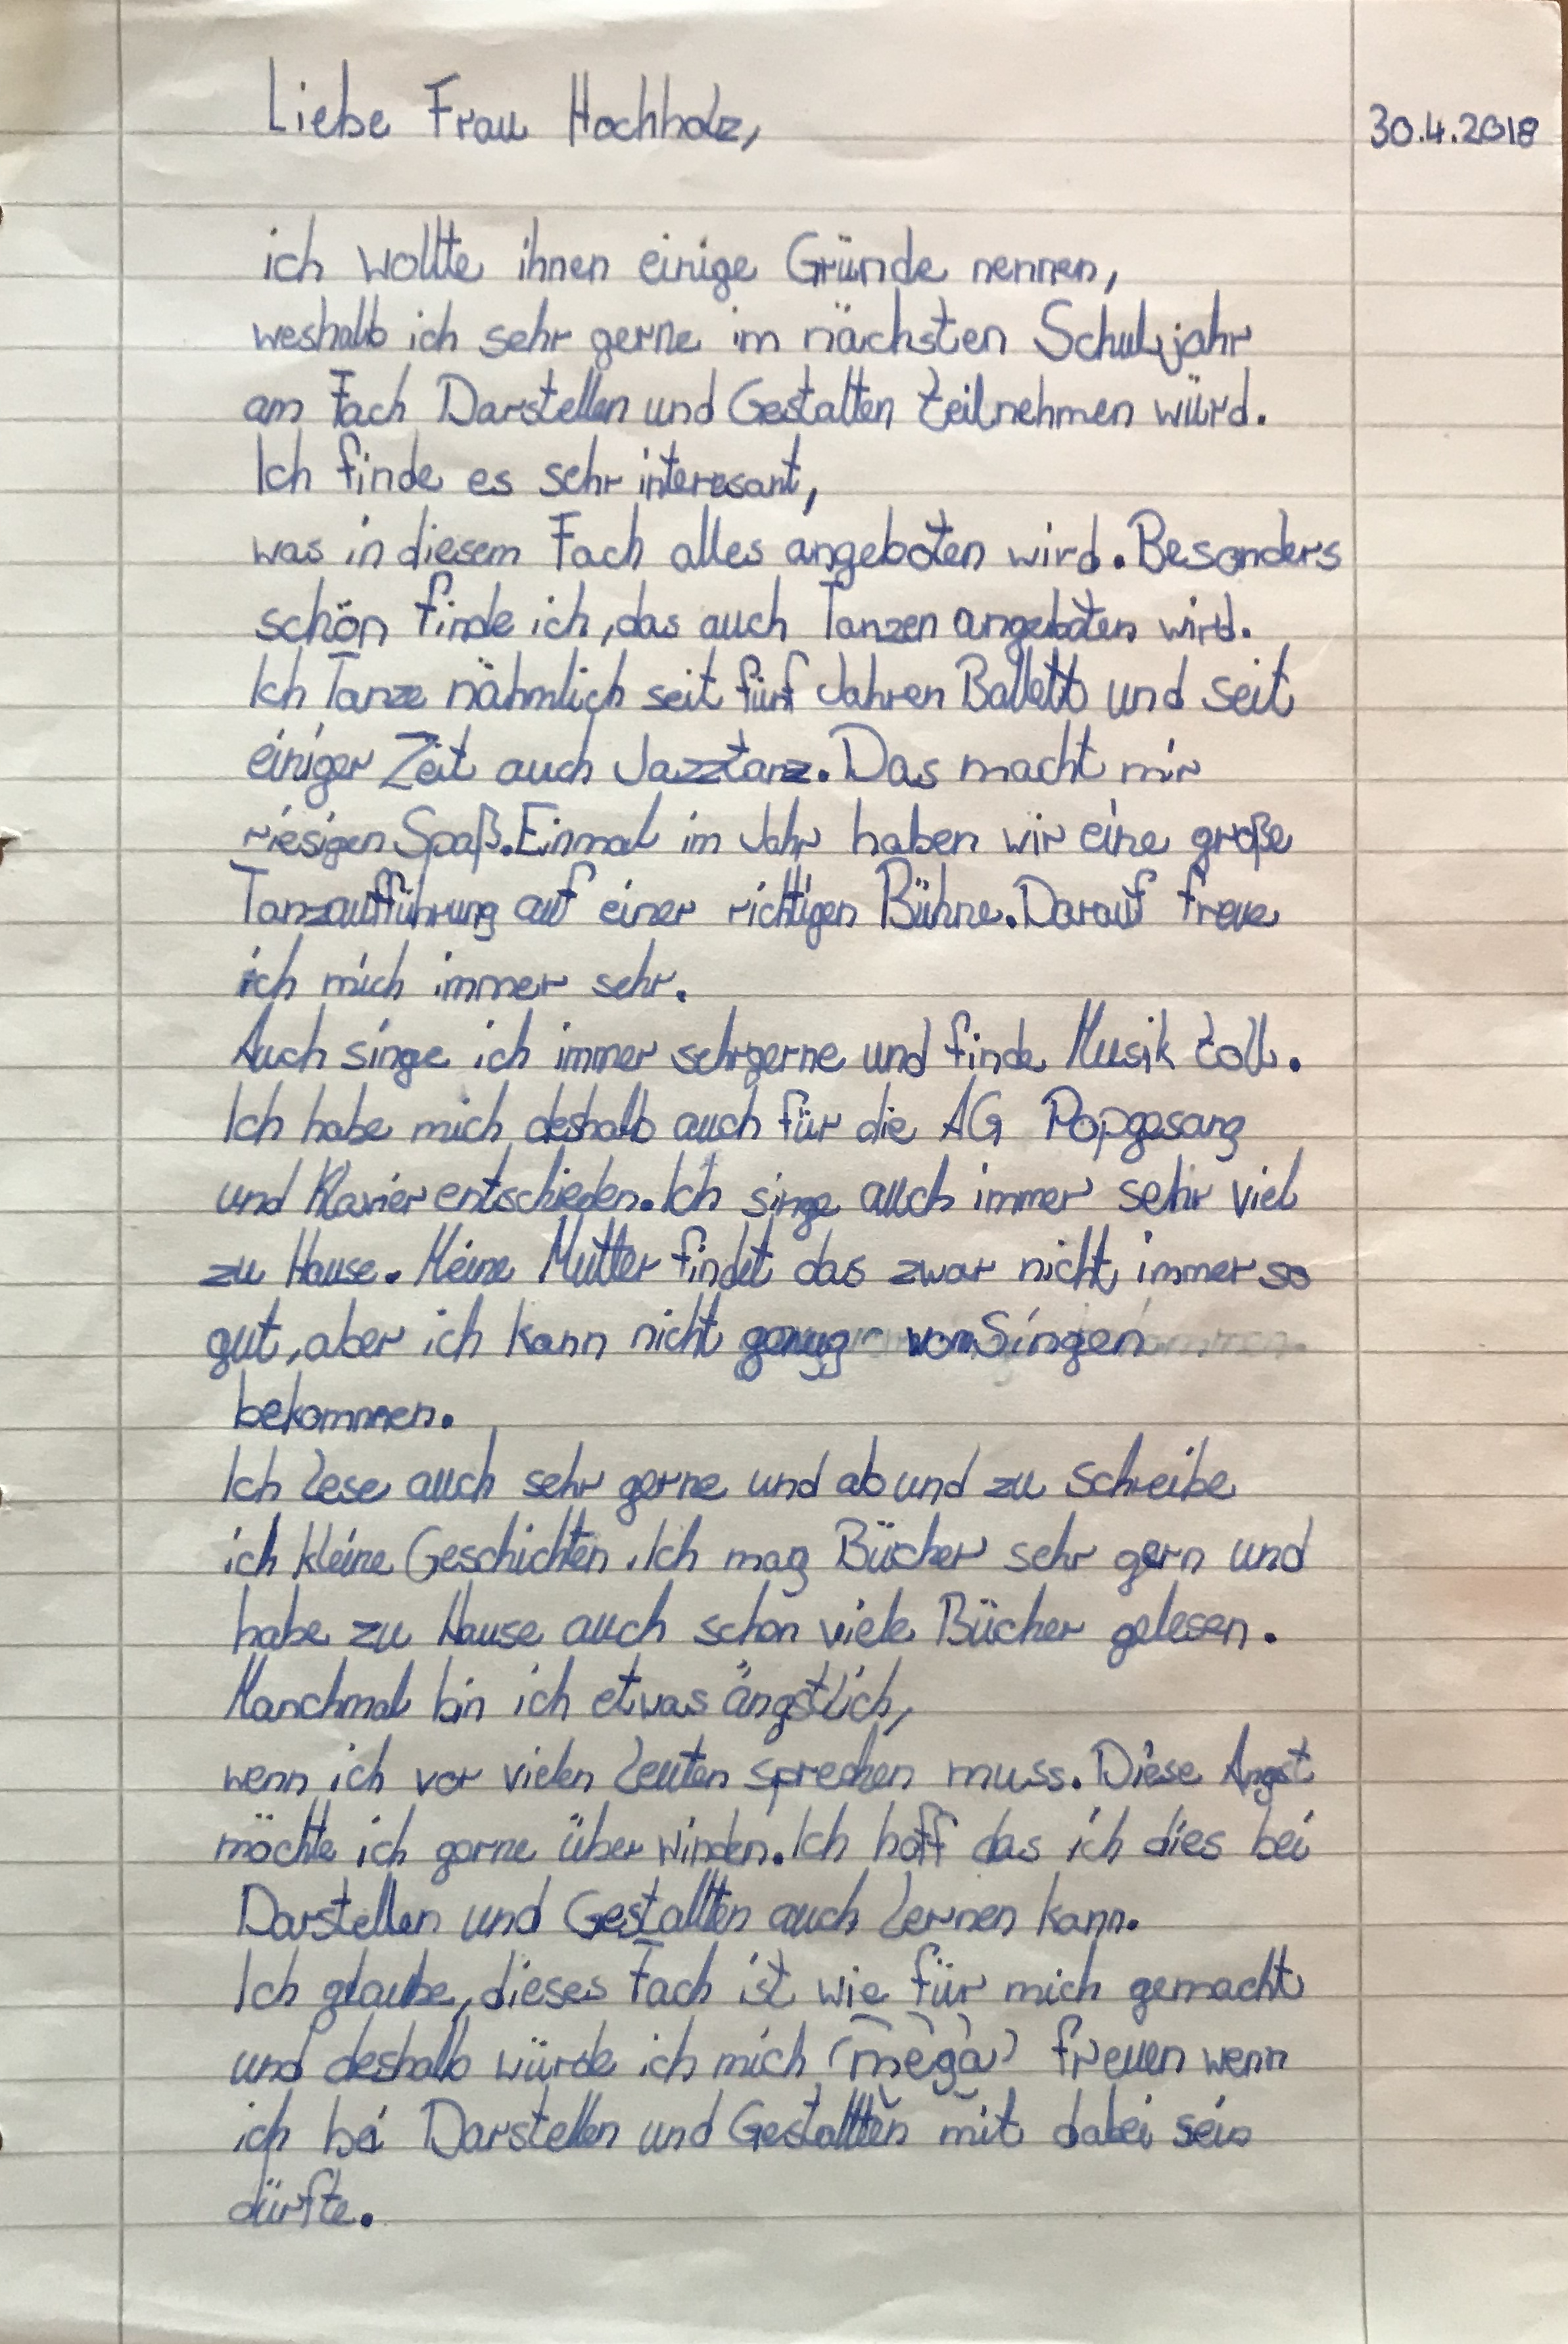 Liebe Frau Hochholz,
30.4.2018
ich wollte ihnen einige Gründe nennen,
weshalb ich sehr gerne im nächsten Schuljahr
am Fach Darstellen und Gestalten teilnehmen würd.
Ich finde es sehr interesant,
was in diesem Fach alles angeboten wird. Besonders
schön finde ich, das auch Tanzen angeboten wird.
Ich Tanze nähmlich seit fünf Jahren Ballett und seit
einiger Zeit auch Jazztanz. Das macht mir
riesigen Spaß. Einmal im Jahr haben wir eine große
Tanzaufführung auf einer richtigen Bühne. Darauf freue
ich mich immer sehr.
Auch singe ich immer sehr gerne und finde Musik toll.
Ich habe mich deshalb auch für die AG Popgesang
und Klavier entschieden. Ich singe auch immer sehr viel
zu Hause. Meine Mutter findet das zwar nicht immer so
gut, aber ich kann nicht genug vom Singen
bekommen.
Ich lese auch sehr gerne und ab und zu schreibe
ich kleine Geschichten. Ich mag Bücher sehr gern und
habe zu Hause auch schon viele Bücher gelesen.
Manchmal bin ich etwas ängstlich,
wenn ich vor vielen Leuten sprechen muss. Diese Angst
möchte ich gerne über winden. Ich hoff das ich dies bei
Darstellen und Gestallten auch lernen kann.
Ich glaube, dieses Fach ist wie für mich gemacht
und deshalb würde ich mich (mega) freuen wenn
ich bei Darstellen und Gestallten mit dabei sein
dürfte.